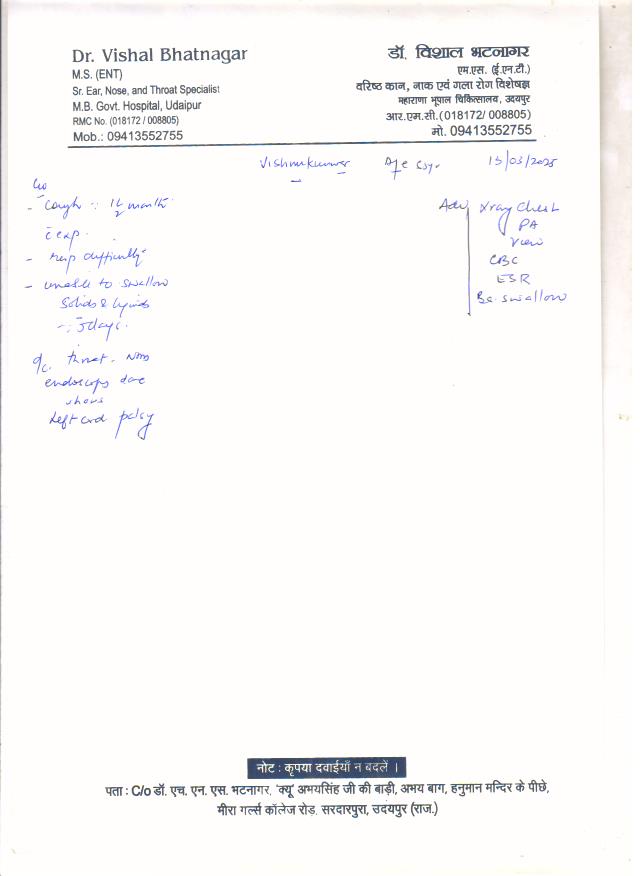 Dr. Vishal Bhatnagar
M.S. (ENT)
Sr. Ear, Nose, and Throat Specialist
M.B. Govt. Hospital, Udaipur
RMC No. (018172 / 008805)
Mob.: 09413552755
डॉ. विशाल भटनागर
एम.एस. (ई.एन.टी.)
वरिष्ठ कान, नाक एवं गला रोग विशेषज्ञ
महाराणा भूपाल चिकित्सालय, उदयपुर
आर.एम.सी.(018172/ 008805)
मो. 09413552755
Vishnukunwar Age 65y.
C/o
- Cough
- resp difficulty
- unable to swallow
Solids & liquids
throat - NAD
endoscopy done
shows
Left cord palsy
Adv Xray Chest
PA
View
CBC
ESR
Ba swallow
नोट : कृपया दवाईयाँ न बदलें ।
पता : C/o डॉ. एच. एन. एस. भटनागर, 'क्यू' अभयसिंह जी की बाड़ी, अभय बाग, हनुमान मन्दिर के पीछे,
मीरा गर्ल्स कॉलेज रोड़, सरदारपुरा, उदयपुर (राज.)